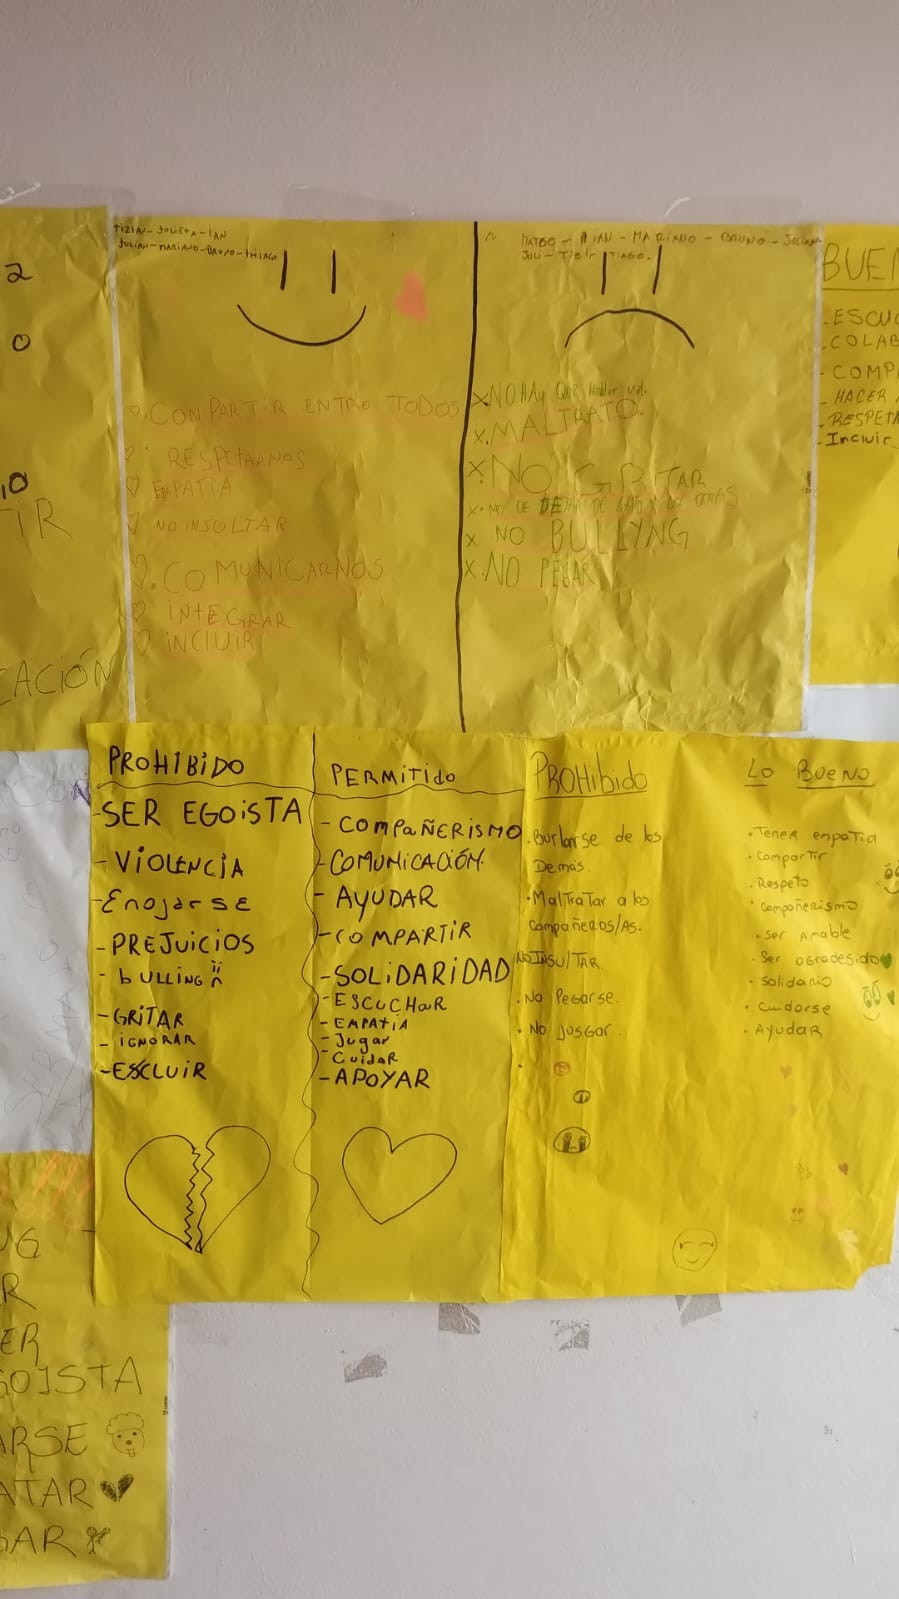 2
0
10
TIR
CACIÓN
TIZIAN- JULIETA - IAN
JULIAN- MARIANO- BRUNO- THIAGO
♡. CONPARTIR ENTRO TODOS
RESPETARNOS
♡ EMPATIA
NO INSULTAR
♡. COMUNICARNOS
♡ INTEGRAR
♡ INCLUIR
MATEO - IAN - MARIANO - BRUNO - JULIAN
JULI - TIAGO.
X. NO HAY QUE Hablar mal.
X. MALTRATO.
X. NO GRITAR
X. NO DE DEJAR DE LADO
X NO BULLYNG
X. NO PEGAR
BUEN
. ESCUC
- COLAB
- COMP
- HACER
- RESPETA
- Incluir
PROHIBIDO
-SER EGOISTA
- VIOLENCIA
-Enojarse
- PREJUICIOS
- bULLING
-GRITAR
- IGNORAR
-ESCLUIR
PERMITIDO
- COMPAÑERISMO
-COMUNICACIÓN.
- AYUDAR
-COMPARTIR
-SOLIDARIDAD
-ESCUCHAR
- EMPATIA
-Jugar
-CUIDAR
-APOYAR
PROHIBIDO
.Burlarse de los
Demas.
.Maltratar a los
Compañeros/AS.
NO INSULTAR
. No Pegarse.
. No Jusgar.
Lo BUENO
.Tener empatia
.Compartir
.Respeto
.Compañerismo
.Ser Amable
.Ser agradesido
.Solidario
.Cuidarse
.AYUDAR
UG
R
ER
GOISTA
ARSE
ATAR
GAR